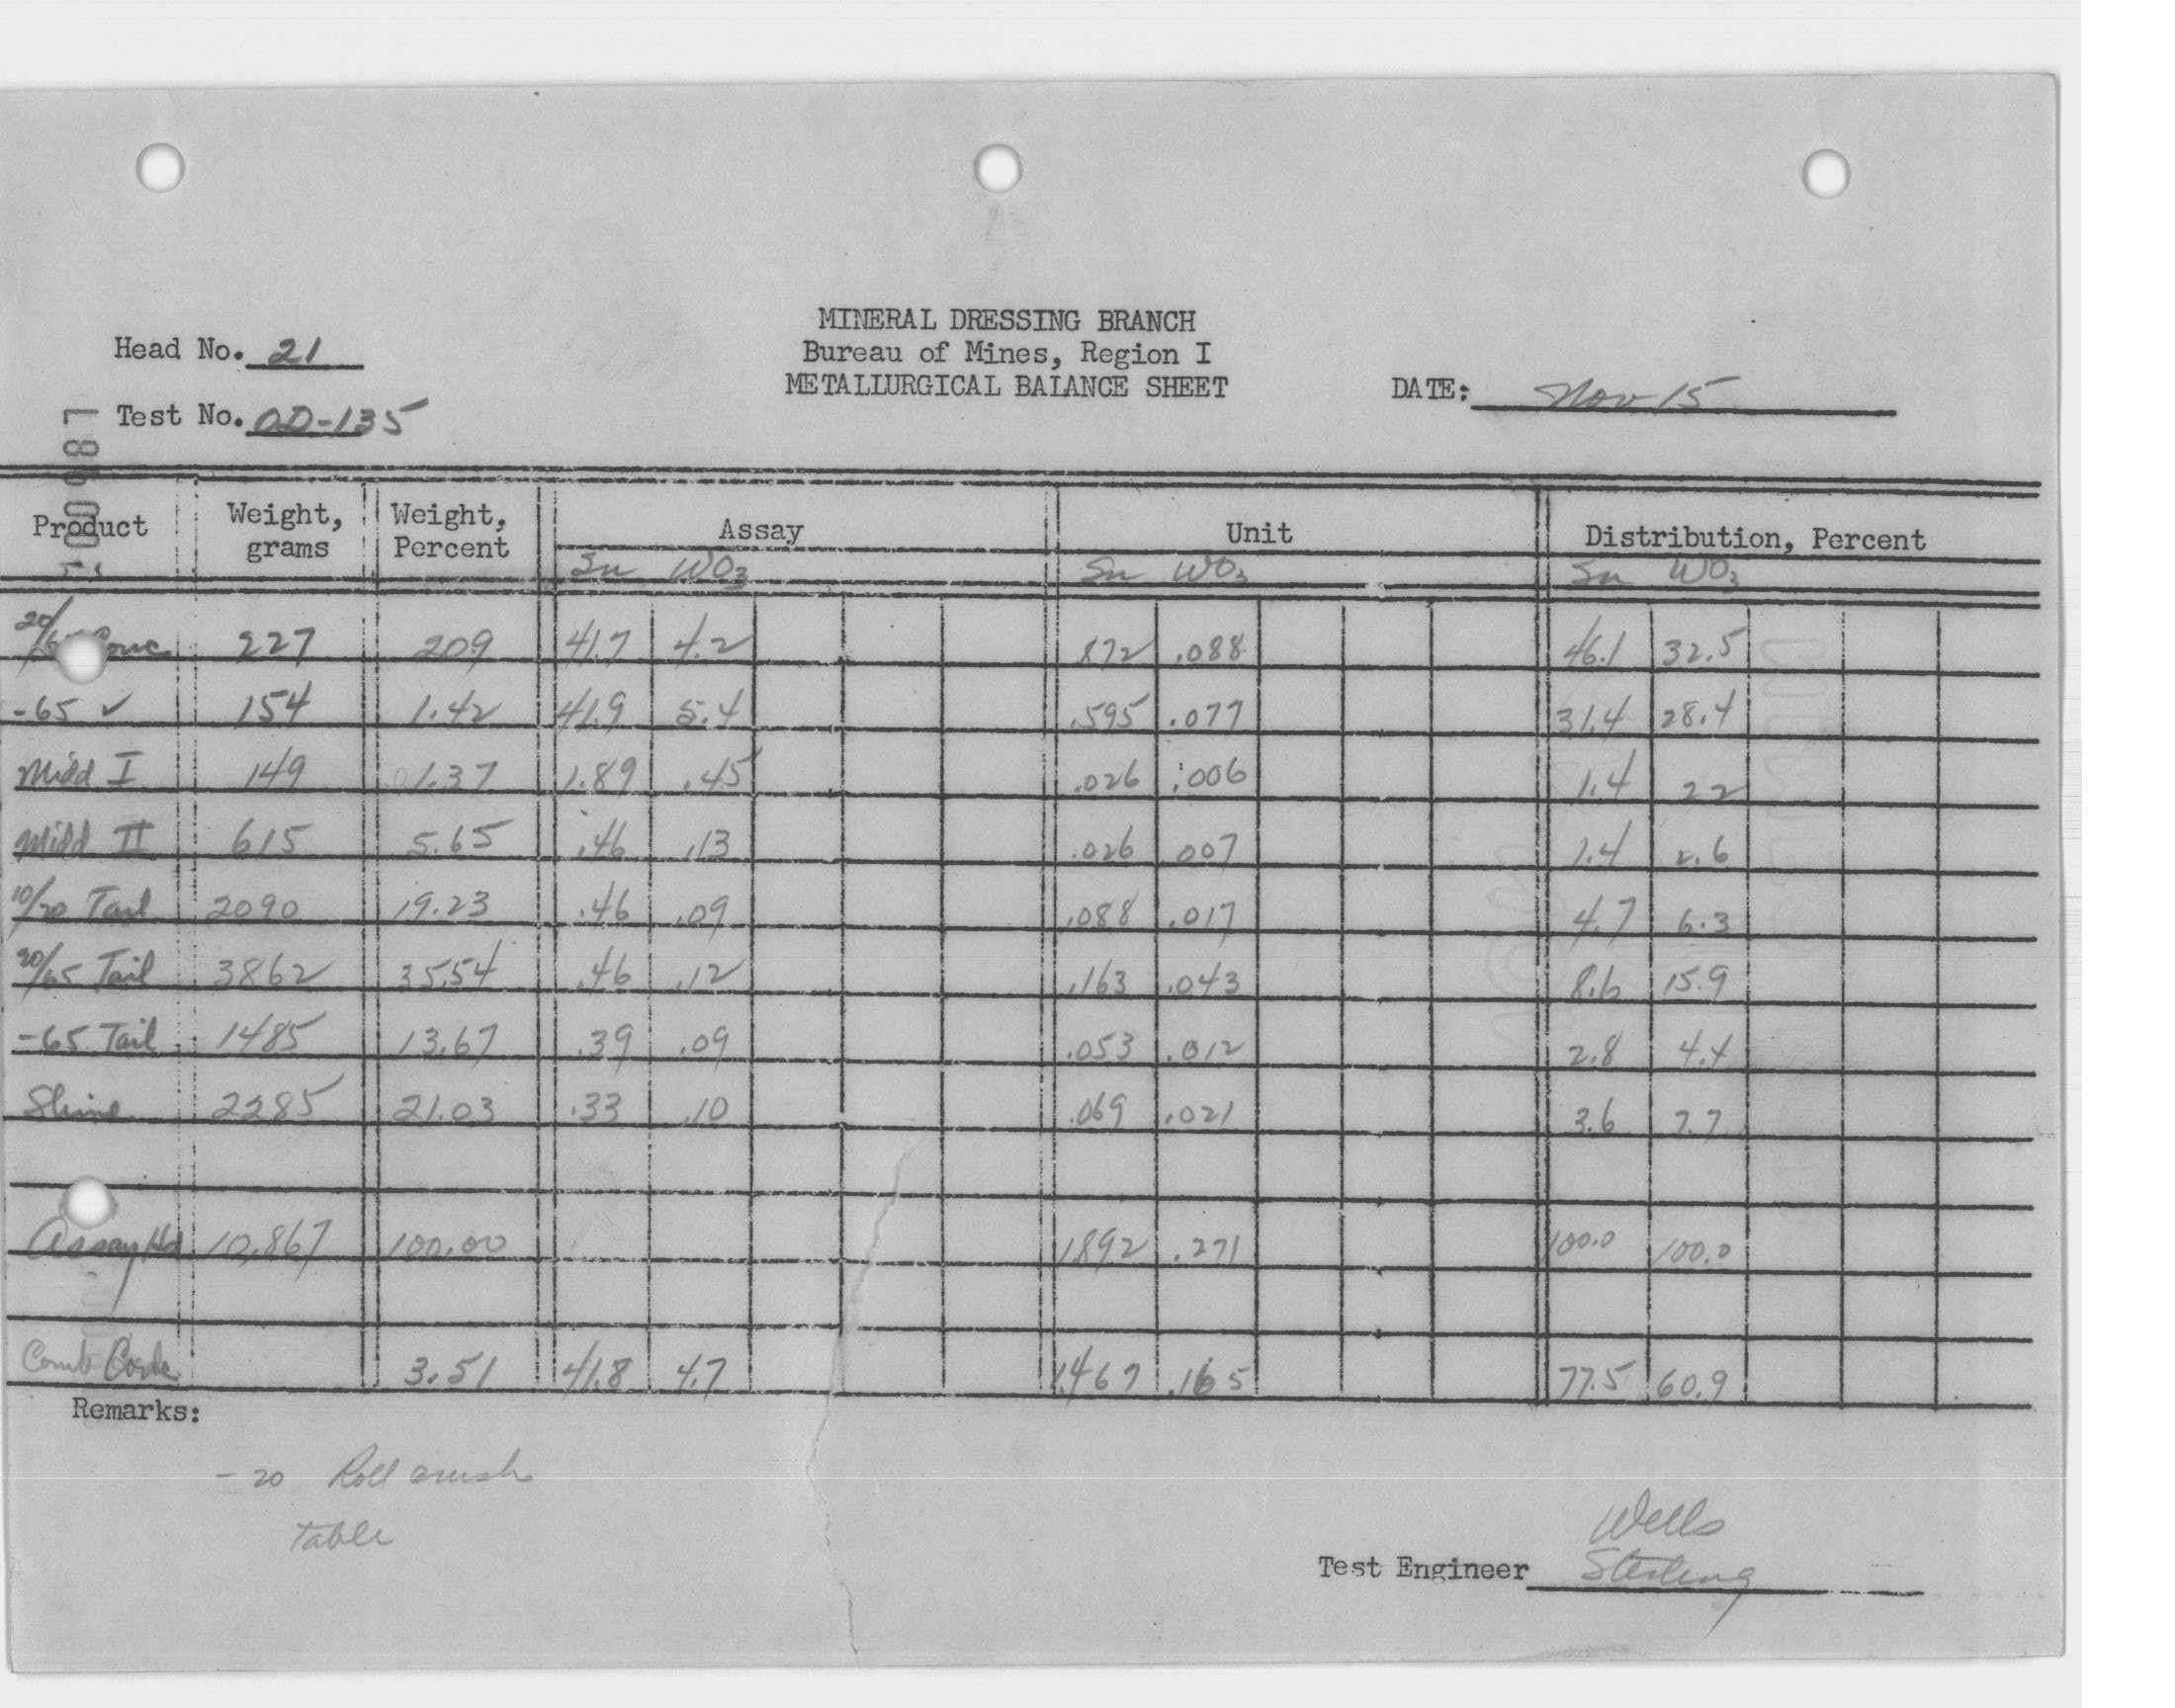 MINERAL DRESSING BRANCH
Head No. 21 Bureau of Mines, Region I
METALLURGICAL BALANCE SHEET DATE: Nov 15
Test No. OD-135
Product Weight, grams Weight, Percent Assay Unit Distribution, Percent
Sn WO3 Sn WO3 Sn WO3
20/ Conc 227 209 41.7 4.2 .872 .088 46.1 32.5
-65 ✓ 154 1.42 41.9 5.4 .595 .077 31.4 28.4
Midd I 149 1.37 1.89 .45 .026 .006 1.4 22
Midd II 615 5.65 .46 .13 .026 007 1.4 2.6
10/20 Tail 2090 19.23 .46 .09 .088 .017 4.7 6.3
20/65 Tail 3862 35.54 .46 .12 .163 .043 8.6 15.9
-65 Tail 1485 13.67 .39 .09 .053 .012 2.8 4.4
Slime 2285 21.03 .33 .10 .069 .021 3.6 7.7
Assay Hd 10,867 100.00 1.892 .271 100.0 100.0
Comb Conc 3.51 41.8 4.7 1.467 .165 77.5 60.9
Remarks:
- 20 Roll crush
table
Wells
Test Engineer Sterling